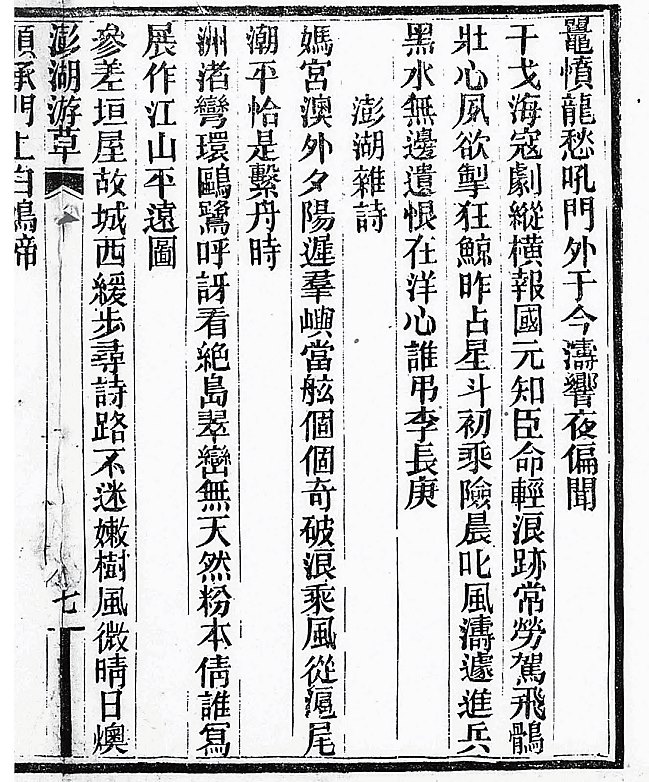 鼉憤龍愁吼門外于今濤響夜偏聞
干戈海寇劇縱橫報國元知臣命輕浪跡常勞駕飛鶻
壯心夙欲掣狂鯨昨占星斗初乘險晨叱風濤遽進兵
黑水無邊遺恨在洋心誰弔李長庚
澎湖雜詩
媽宮澳外夕陽遲羣嶼當舷個個奇破浪乘風從滬尾
潮平恰是繫舟時
洲渚彎環鷗鷺呼訝看絶島翠巒無天然粉本倩誰寫
展作江山平遠圖
參差垣屋故城西緩步尋詩路不迷嫩樹風微晴日燠
澎湖游草
七
順承門上白鴉啼